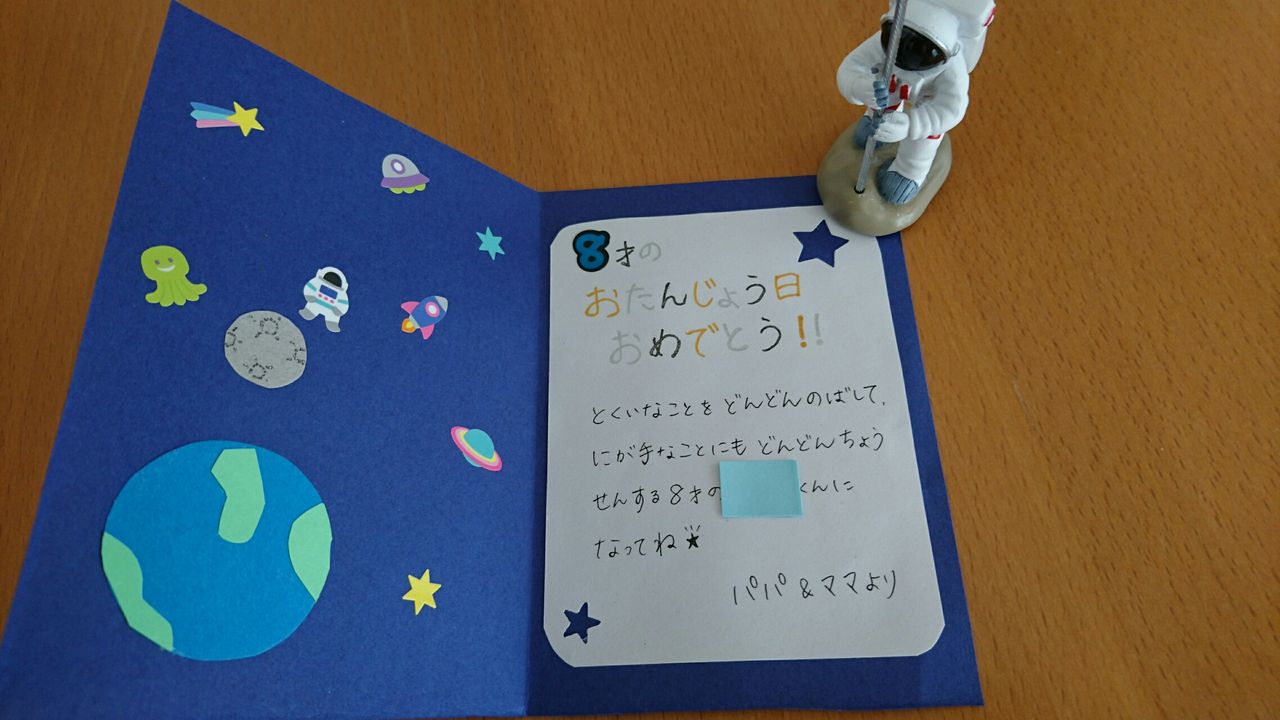 8才の
おたんじょう日
おめでとう!!
とくいなことを どんどんのばして、
にが手なことにも どんどんちょう
せんする8才の くんに
なってね★
パパ&ママより